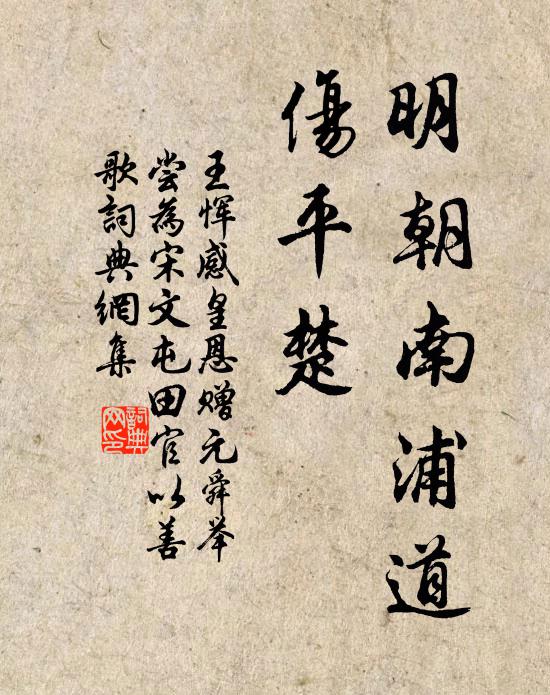 明朝南浦道
傷平楚
王惲感皇恩赠元舜举
尝為宋文屯田官以善
歌詞典網集
詞典网印